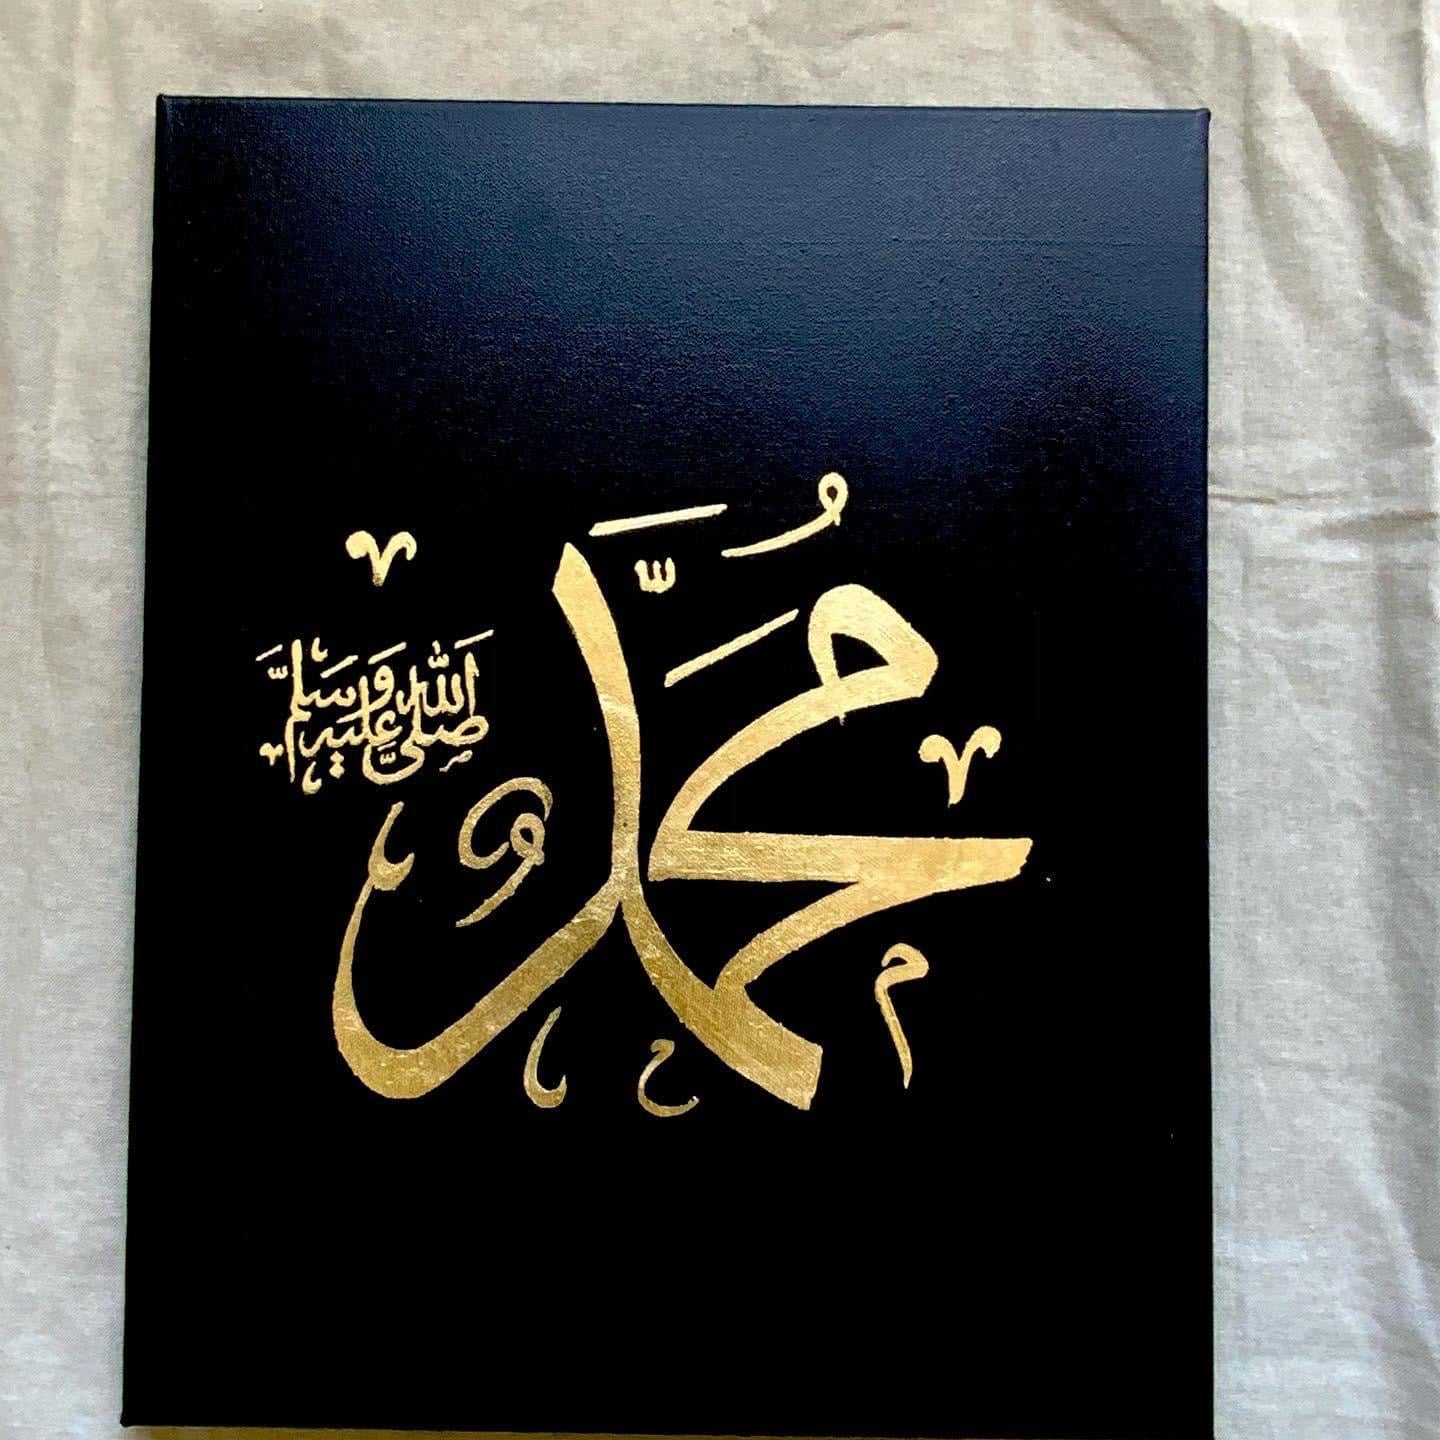 مُحَمَّد
صَلَّى اللَّه عَلَيْهِ وَسَلَّمَ